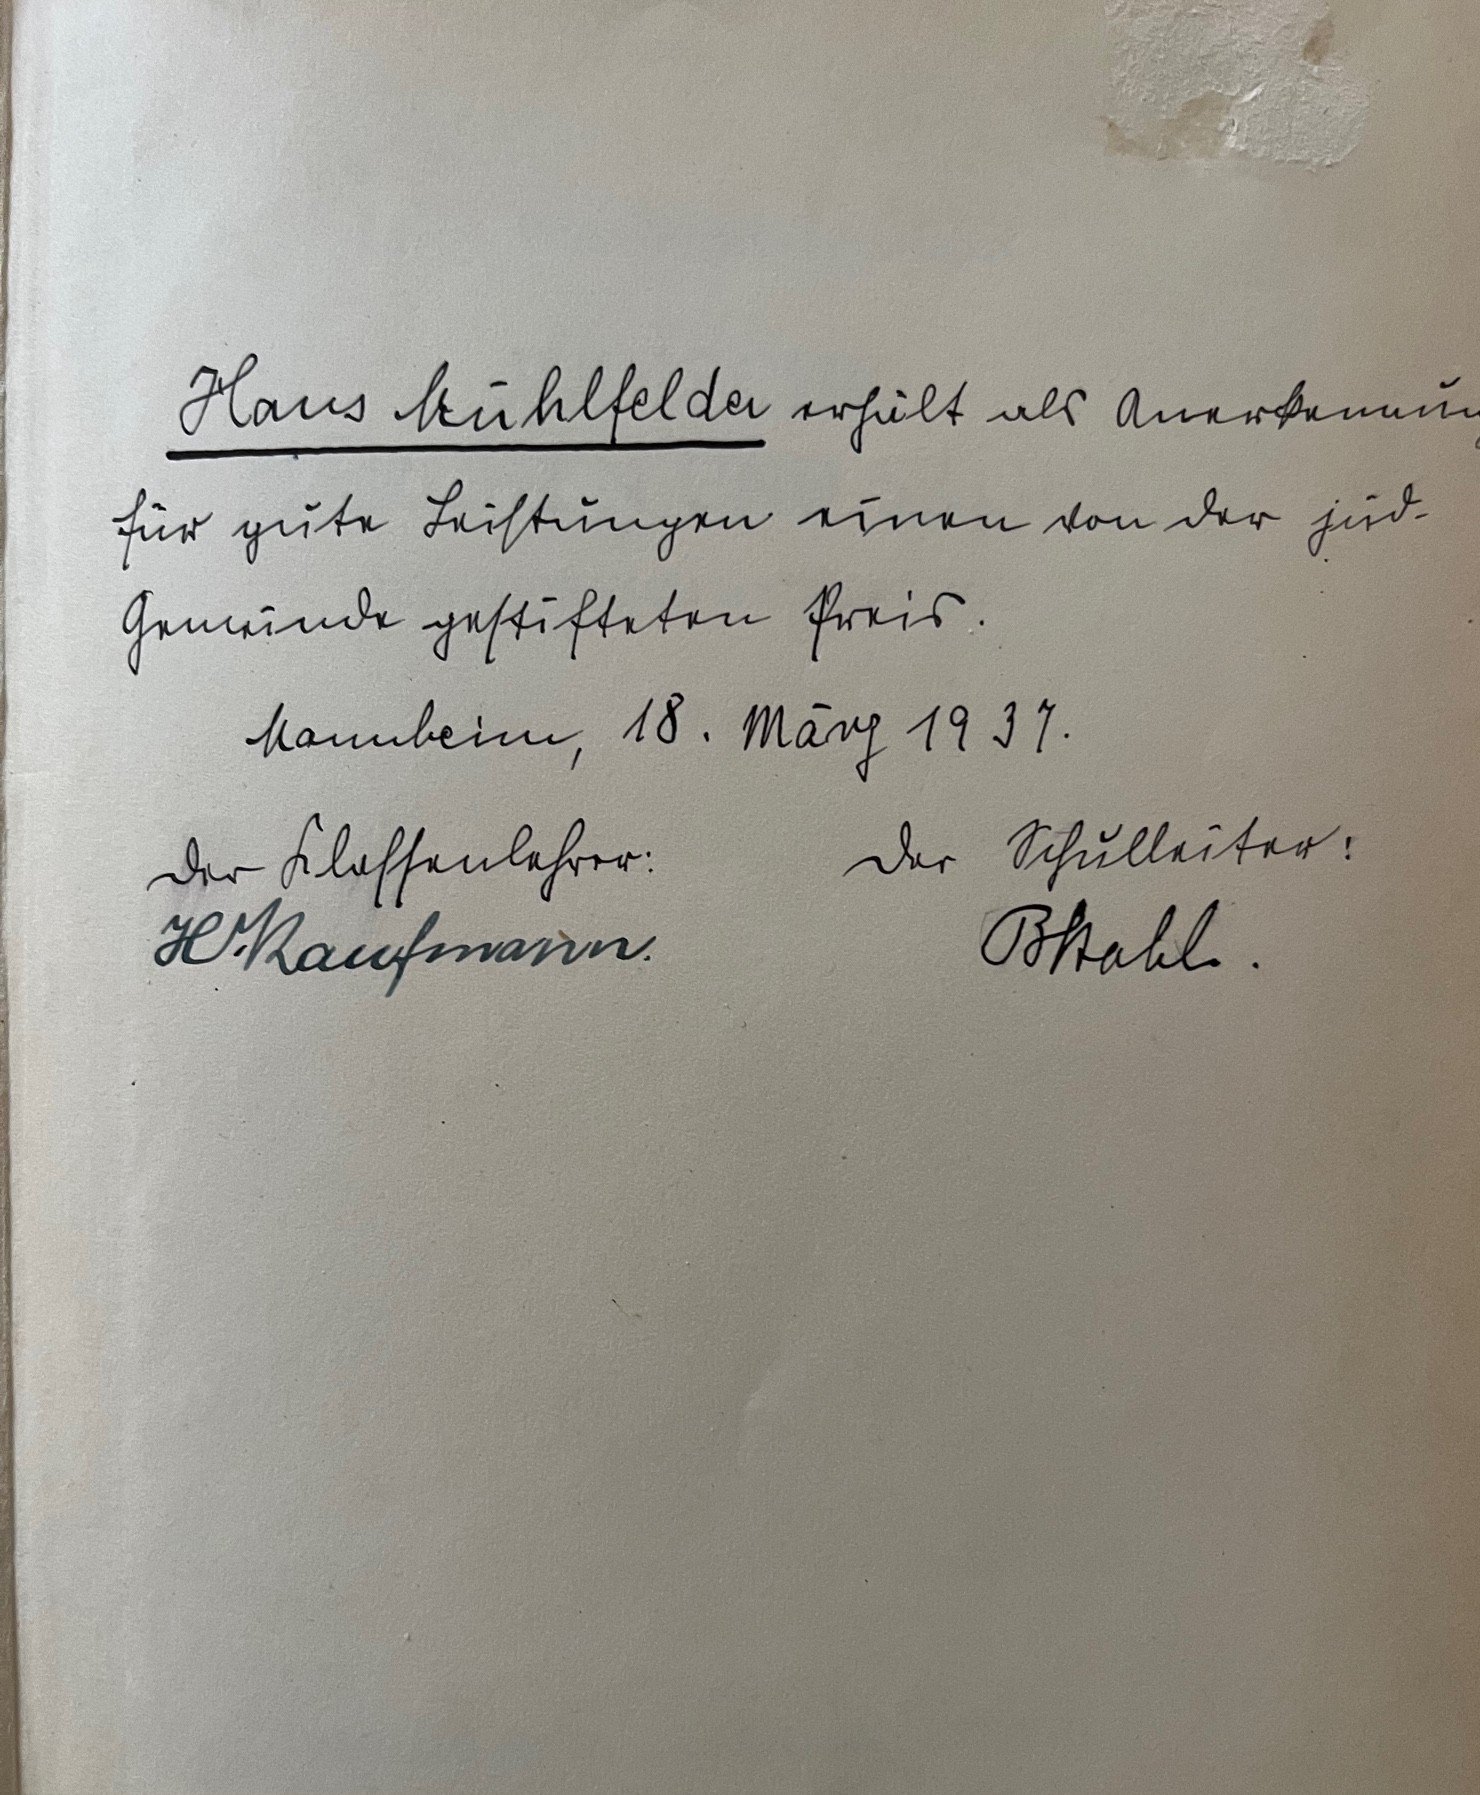 Hans Mühlfelder erhält als Anerkennung
für gute Leistungen einen von der jüd.
Gemeinde gestifteten Preis.
Mannheim, 18. März 1937.
Der Klassenlehrer: Der Schulleiter:
H. Kaufmann. BStahl.